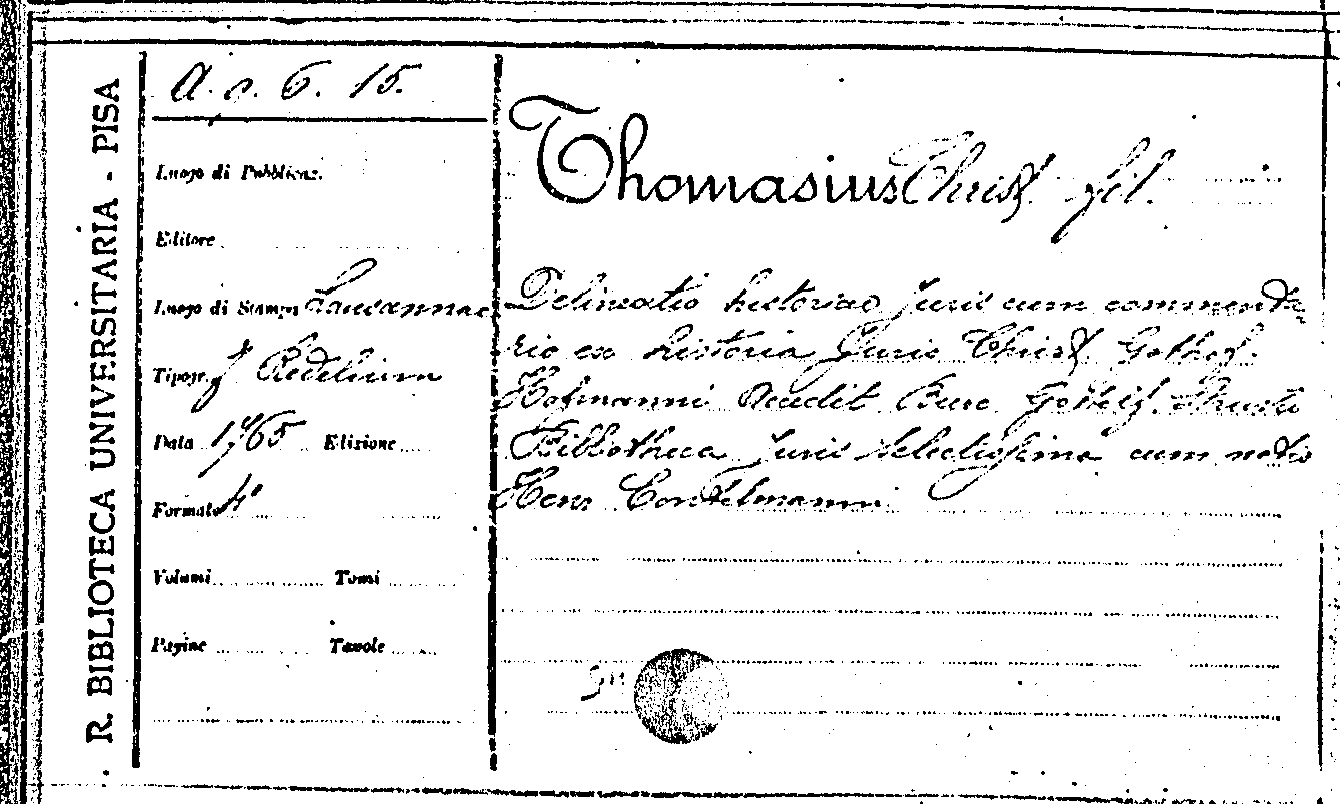 R. BIBLIOTECA UNIVERSITARIA - PISA
A. o. 6. 15.
Luogo di Pubblicaz.
Editore
Luogo di Stampa Lausannae
Tipogr. J
Data 1765 Edizione
Formato 4°
Volumi Tomi
Pagine Tavole
Thomasius Christ. fil.
Delineatio historiae Juris cum commenta-
rio ex historia Juris Christ. Gothof.
Hofmanni Burc. Gotthelf. Struvii
Bibliotheca Juris selectissima cum notis